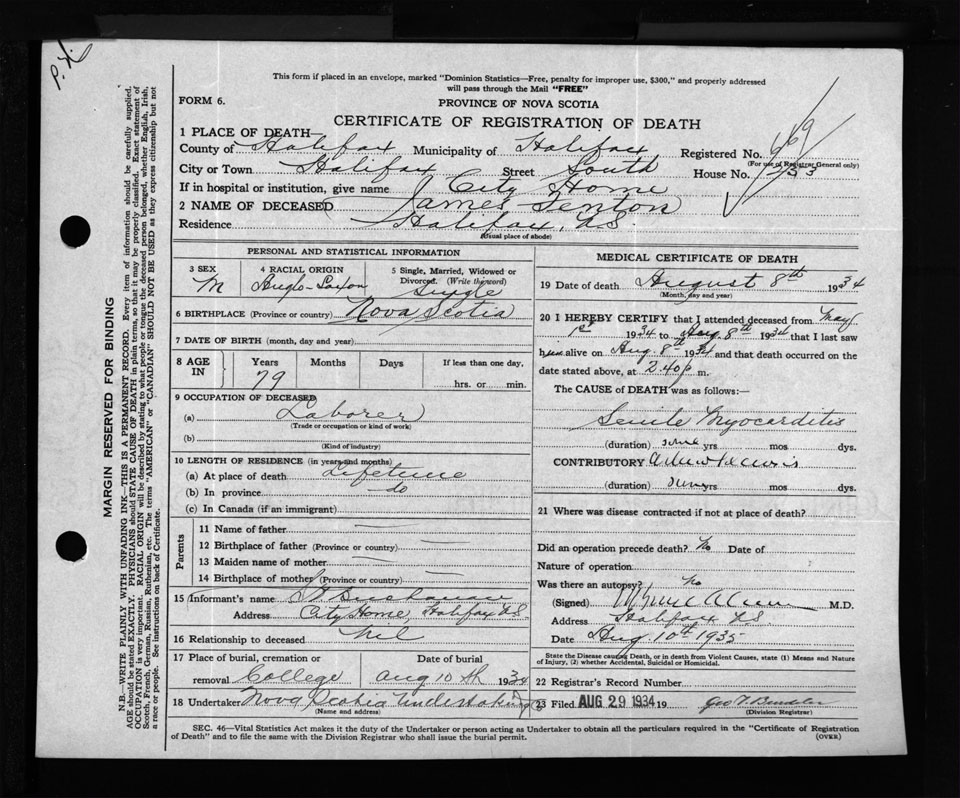 P.H.
This form if placed in an envelope, marked "Dominion Statistics—Free, penalty for improper use, $300," and properly addressed
will pass through the Mail "FREE"
FORM 6.
PROVINCE OF NOVA SCOTIA
CERTIFICATE OF REGISTRATION OF DEATH
1 PLACE OF DEATH—
County of Halifax Municipality of Halifax Registered No. 469
(For use of Registrar General only)
City or Town Halifax Street South House No.
If in hospital or institution, give name City Home
2 NAME OF DECEASED James Fenton
Residence Halifax, N.S.
(Usual place of abode)
PERSONAL AND STATISTICAL INFORMATION
3 SEX M
4 RACIAL ORIGIN Anglo-Saxon
5 Single, Married, Widowed or Divorced. (Write the word) Single
6 BIRTHPLACE (Province or country) Nova Scotia
7 DATE OF BIRTH (month, day and year)
8 AGE IN Years Months Days If less than one day,
79 hrs. or min.
9 OCCUPATION OF DECEASED
(a) Laborer
(Trade or occupation or kind of work)
(b)
(Kind of industry)
10 LENGTH OF RESIDENCE (in years and months)
(a) At place of death Lifetime
(b) In province do
(c) In Canada (if an immigrant)
Parents
11 Name of father —
12 Birthplace of father (Province or country) —
13 Maiden name of mother —
14 Birthplace of mother (Province or country) —
15 Informant's name Buchanan
Address City Home, Halifax N.S.
16 Relationship to deceased Nil
17 Place of burial, cremation or removal College
Date of burial Aug 10th 1934
18 Undertaker Nova Scotia Undertaking
(Name and address)
MEDICAL CERTIFICATE OF DEATH
19 Date of death August 8th 1934
(Month, day and year)
20 I HEREBY CERTIFY that I attended deceased from May
1st 1934 to Aug. 8th 1934 that I last saw
him alive on Aug 8th 1934 and that death occurred on the
date stated above, at 2.40 p m.
The CAUSE of DEATH was as follows:—
Senile Myocarditis
(duration) some yrs mos dys.
CONTRIBUTORY
(duration) some yrs mos dys.
21 Where was disease contracted if not at place of death?
Did an operation precede death? No Date of
Nature of operation
Was there an autopsy? No
(Signed) M.D.
Address Halifax N.S.
Date Aug 10th 1935
State the Disease causing Death, or in death from Violent Causes, state (1) Means and Nature
of Injury, (2) whether Accidental, Suicidal or Homicidal.
22 Registrar's Record Number
23 Filed AUG 29 1934 19
(Division Registrar)
SEC. 46—Vital Statistics Act makes it the duty of the Undertaker or person acting as Undertaker to obtain all the particulars required in the "Certificate of Registration
of Death" and to file the same with the Division Registrar who shall issue the burial permit. (OVER)
MARGIN RESERVED FOR BINDING
N.B.—WRITE PLAINLY WITH UNFADING INK—THIS IS A PERMANENT RECORD. Every item of information should be carefully supplied.
AGE should be stated EXACTLY. PHYSICIANS should STATE CAUSE OF DEATH in plain terms, so that it may be properly classified. Exact statement of
OCCUPATION is very important. RACIAL ORIGIN will be described by stating to what people or tongue the deceased person belonged, whether English, Irish,
Scotch, French, German, Russian, Ruthenian, etc. The terms "AMERICAN" or "CANADIAN" SHOULD NOT BE USED as they express citizenship but not
a race or people. See instructions on back of Certificate.